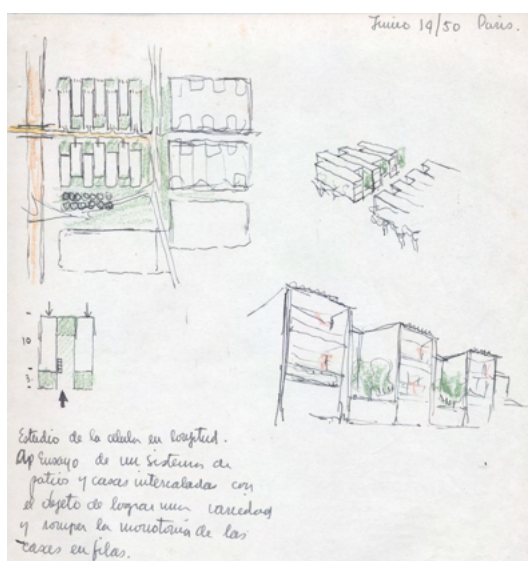 Junio 19/50 Paris.
10
3
Estudio de la celula en longitud.
Ensayo de un sistema de
patios y casas intercaladas con
el objeto de lograr una variedad
y romper la monotonia de las
casas en filas.